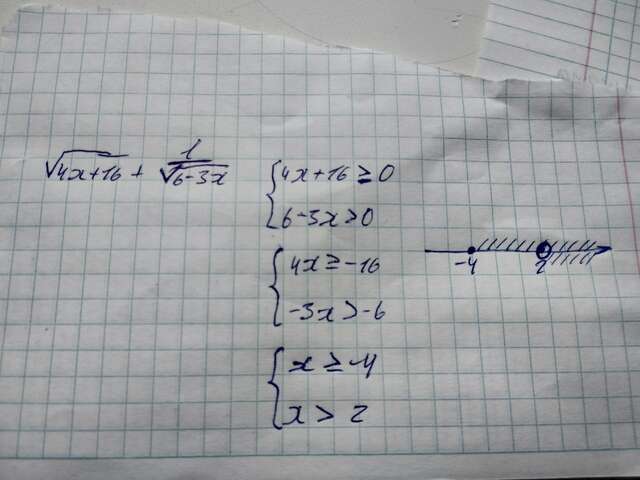 √4x+16 + 1/√6-3x
{4x+16 ≥ 0
6-3x>0
{4x ≥ -16
-3x > -6
{x ≥ -4
x > 2
-4 2